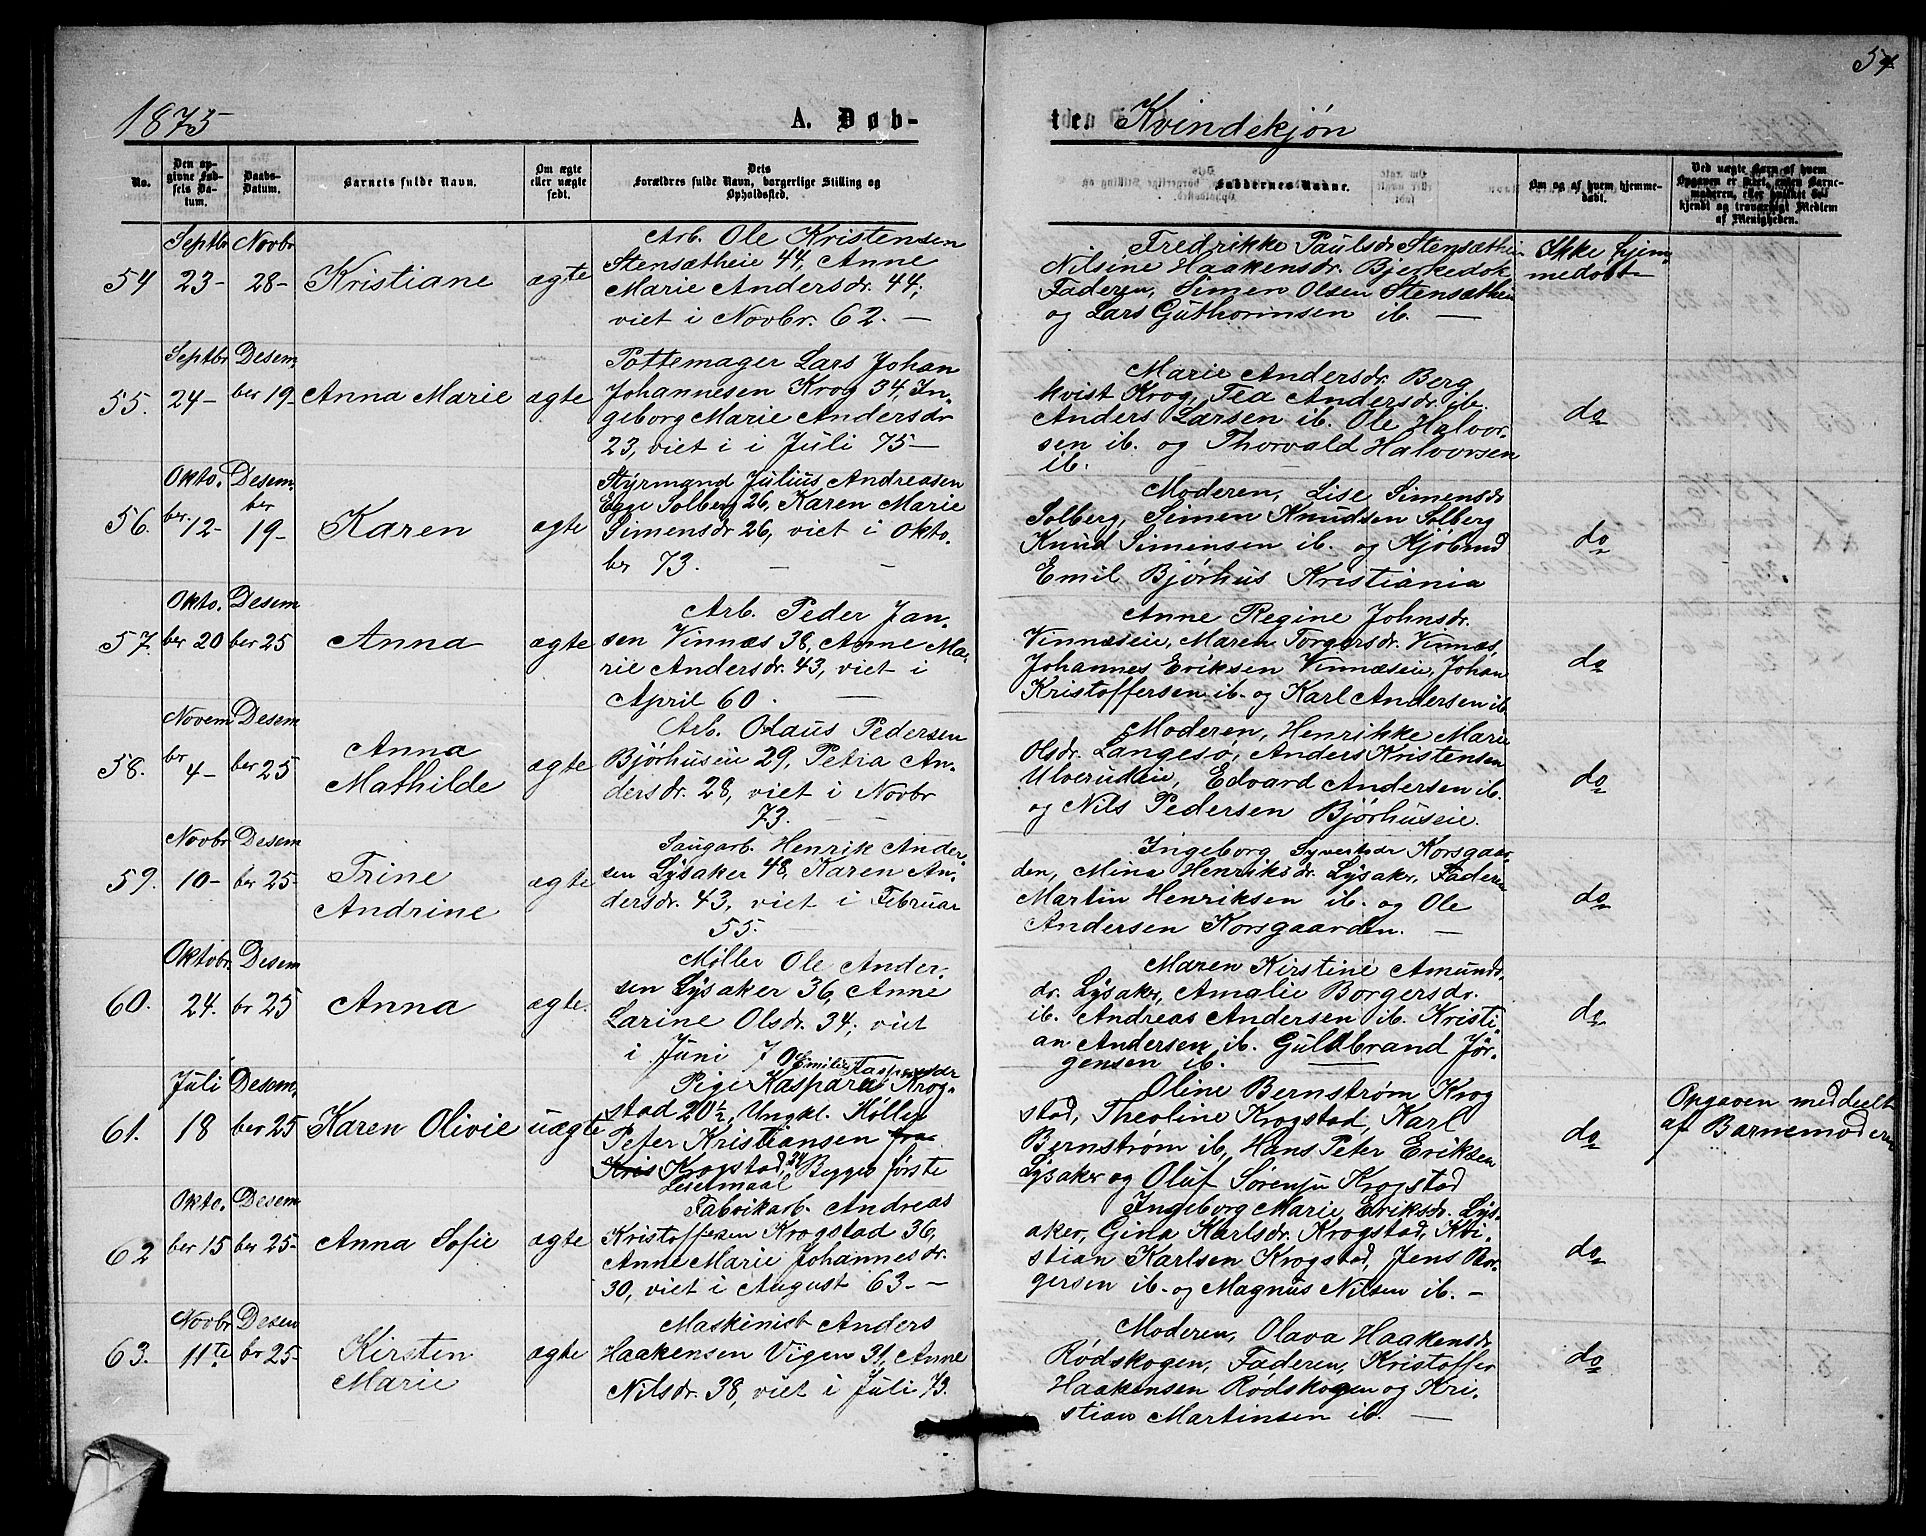 54
1875
A. Døb-
ten Kvindekjøn
No.
Den opgivne Fødsels Datum.
Daabs-Datum.
Barnets fulde Navn.
Om ægte eller uægte født.
Dets Forældres fulde Navn, borgerlige Stilling og Opholdssted.
Faddernes Navne.
Om og af hvem hjemmedøbt.
Ved uægte Barn af hvem Opgaven er skeet, enten Barnemoderen, eller hvilket bekjendt og troværdigt Medlem af Menigheden.
54
Septbr 23-
Novbr 28-
Kristiane
ægte
Arb. Ole Kristensen
Stensætheie 44, Anne
Marie Andersdr. 44;
viet i Novbr. 62. —
Fredrikke Paulsdr. Stensætheie
Nilsine Haakensdr. Bjerkedok
Faderen, Simen Olsen Stensætheie
og Lars Guthormsen ib. —
Ikke hjem-
medøbt
55.
Septbr 24-
Desem
ber 19-
Anna Marie
ægte
Pottemager Lars Johan
Johannesen Krog 34, In-
geborg Marie Andersdr
23, viet i i Juli 75—
Marie Andersdr. Berg
kvist Krog, Tea Andersdr. ib.
Anders Larsen ib. Ole Halvor-
sen ib. og Thorvald Halvorsen
ib. — —
do
56.
Okto.
ber. 12-
Desem.
ber
19-
Karen
ægte
Styrmand Julius Andreasen
Ege Solberg 26, Karen Marie
Simensdr. 26, viet i Okto.
ber 73. — —
Moderen, Lise Simensdr
Solberg, Simen Knudsen Solberg
Knud Simensen ib. og Kjøbmd
Emil Bjørhus Kristiania
do
57.
Okto.
ber 20
Desem
ber 25
Anna
ægte
Arb. Peder Jan-
sen Vinnæs 38, Anne Ma-
rie Andersdr. 43, viet i
April 60. —
Anne Regine Johnsdr.
Vinnæseie, Maren Torgersdr. Vinnæs,
Johannes Eriksen Vinnæseie, Johan
Kristoffersen ib. og Karl Andersen ib.
do
58.
Novem
ber 4-
Desem
ber 25
Anna
Mathilde
ægte
Arb. Olaus Pedersen
Bjørhuseie 29, Petra An-
dersdr. 28, viet i Novbr
73. — —
Moderen, Henrikke Marie
Olsdr. Langesø, Anders Kristensen
Ulverudeie, Edvard Andersen ib.
og Nils Pedersen Bjørhuseie.
do
59.
Novbr
10-
Desem
ber 25-
Trine
Andrine
ægte
Saugarb. Henrik Ander-
sen Lysaker 48, Karen An-
dersdr. 43, viet i Februar
55. —
Ingeborg Syvertsdr Korsgaar-
den, Mina Henriksdr. Lysaker, Faderen
Martin Henriksen ib. og Ole
Andersen Korsgaarden. —
do
60.
Oktobr.
24.
Desem
br 25
Anna
ægte.
Møller Ole Ander-
sen Lysaker 36, Anne
Larine Olsdr. 34; viet
i Juni 70
Maren Kirstine Amunds-
dr. Lysaker, Amalie Borgersdr.
ib. Andreas Andersen ib. Kristi-
an Andersen ib. Guldbrand Jør-
gensen ib. —
do
61.
Juli
18
Desem.
ber 25
Karen Olivie
uægte
Emilie Kaspersdr
Pige Kaspara Krog-
stad 20½, Ungkl. Møller
Peter Kristiansen fra
Kris Krogstad, 34 Begges første
Leiermaal
Oline Bernstrøm Krog
stad, Theoline Krogstad, Karl
Bernstrøm ib, Hans Peter Eriksen
Lysaker og Oluf Sørensen Krogstad
do
Opgaven meddeelt
af Barnemoderen
62
Okto.
ber 15
Desem
ber 25-
Anna Sofie
ægte
Fabrikarb. Andreas
Kristoffersen Krogstad 36,
Anne Marie Johannesdr.
30, viet i August 63.—
Ingeborg Marie Eriksdr. Lys-
aker, Gina Karlsdr. Krogstad, Kri-
stian Karlsen Krogstad, Jens Bor-
gersen ib. og Magnus Nilsen ib. —
do
63.
Novbr
11te
Desem
br 25-
Kirsten
Marie
ægte
Maskinist Anders
Haakensen Vigen 31, Anne
Nilsdr. 38, viet i Juli 73.
Moderen, Olava Haakensdr.
Rødskogen, Faderen, Kristoffer
Haakensen Rødskogen og Kri-
stian Martinsen ib. —
do